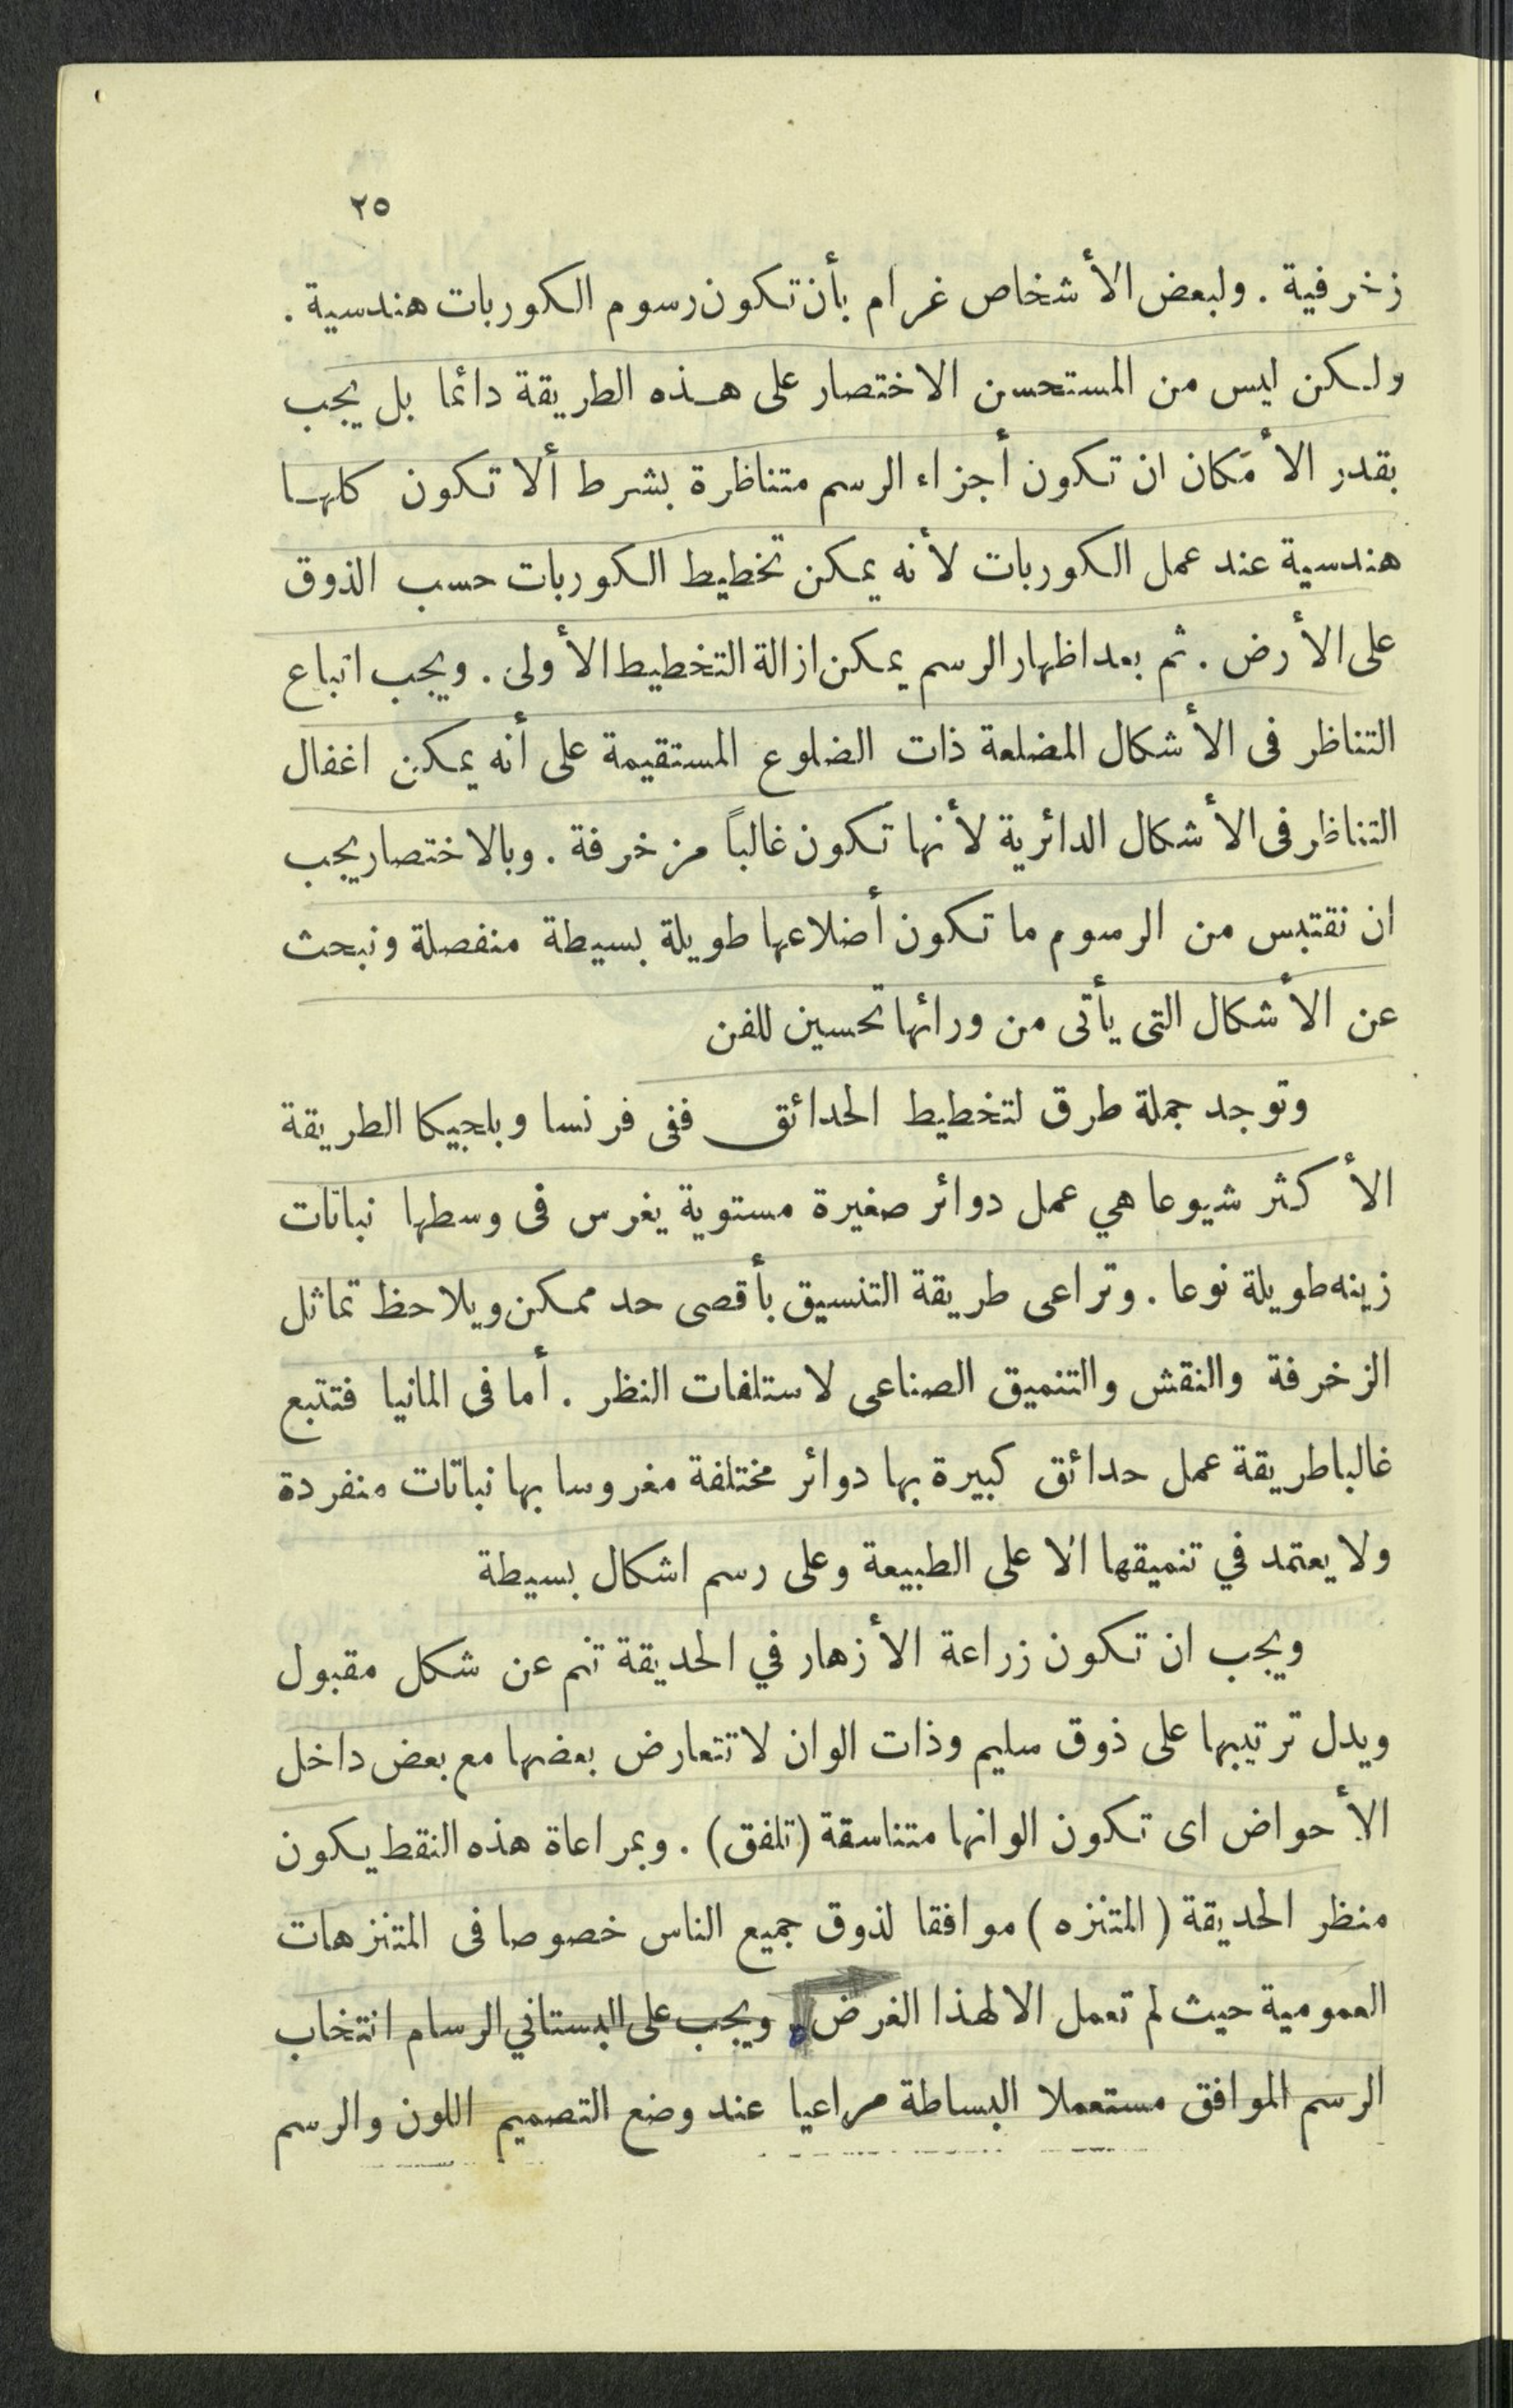 ٢٥
زخرفية . ولبعض الأشخاص غرام بأن تكون رسوم الكوربات هندسية .
ولكن ليس من المستحسن الاختصار على هذه الطريقة دائما بل يجب
بقدر الأمكان ان تكون أجزاء الرسم متناظرة بشرط ألا تكون كلها
هندسية عند عمل الكوربات لأنه يمكن تخطيط الكوربات حسب الذوق
على الأرض . ثم بعد اظهار الرسم يمكن ازالة التخطيط الأولى . ويجب اتباع
التناظر فى الأشكال المضلعة ذات الضلوع المستقيمة على أنه يمكن اغفال
التناظر فى الأشكال الدائرية لأنها تكون غالباً مزخرفة . وبالاختصار يجب
ان نقتبس من الرسوم ما تكون أضلاعها طويلة بسيطة منفصلة ونبحث
عن الأشكال التى يأتى من ورائها تحسين للفن
وتوجد جملة طرق لتخطيط الحدائق ففى فرنسا وبلجيكا الطريقة
الأكثر شيوعا هي عمل دوائر صغيرة مستوية يغرس فى وسطها نباتات
زينه طويلة نوعا . وتراعى طريقة التنسيق بأقصى حد ممكن ويلاحظ تماثل
الزخرفة والنقش والتنميق الصناعى لاستلفات النظر . أما فى المانيا فتتبع
غالبا طريقة عمل حدائق كبيرة بها دوائر مختلفة مغروسا بها نباتات منفردة
ولا يعتمد في تنميقها الا على الطبيعة وعلى رسم اشكال بسيطة
ويجب ان تكون زراعة الأزهار في الحديقة تنم عن شكل مقبول
ويدل ترتيبها على ذوق سليم وذات الوان لا تتعارض بعضها مع بعض داخل
الأحواض اى تكون الوانها متناسقة (تلفق) . وبمراعاة هذه النقط يكون
منظر الحديقة ( المتنزه ) موافقا لذوق جميع الناس خصوصا فى المتنزهات
العمومية حيث لم تعمل الا لهذا الغرض . ويجب على البستاني الرسام انتخاب
الرسم الموافق مستعملا البساطة مراعيا عند وضع التصميم اللون والرسم